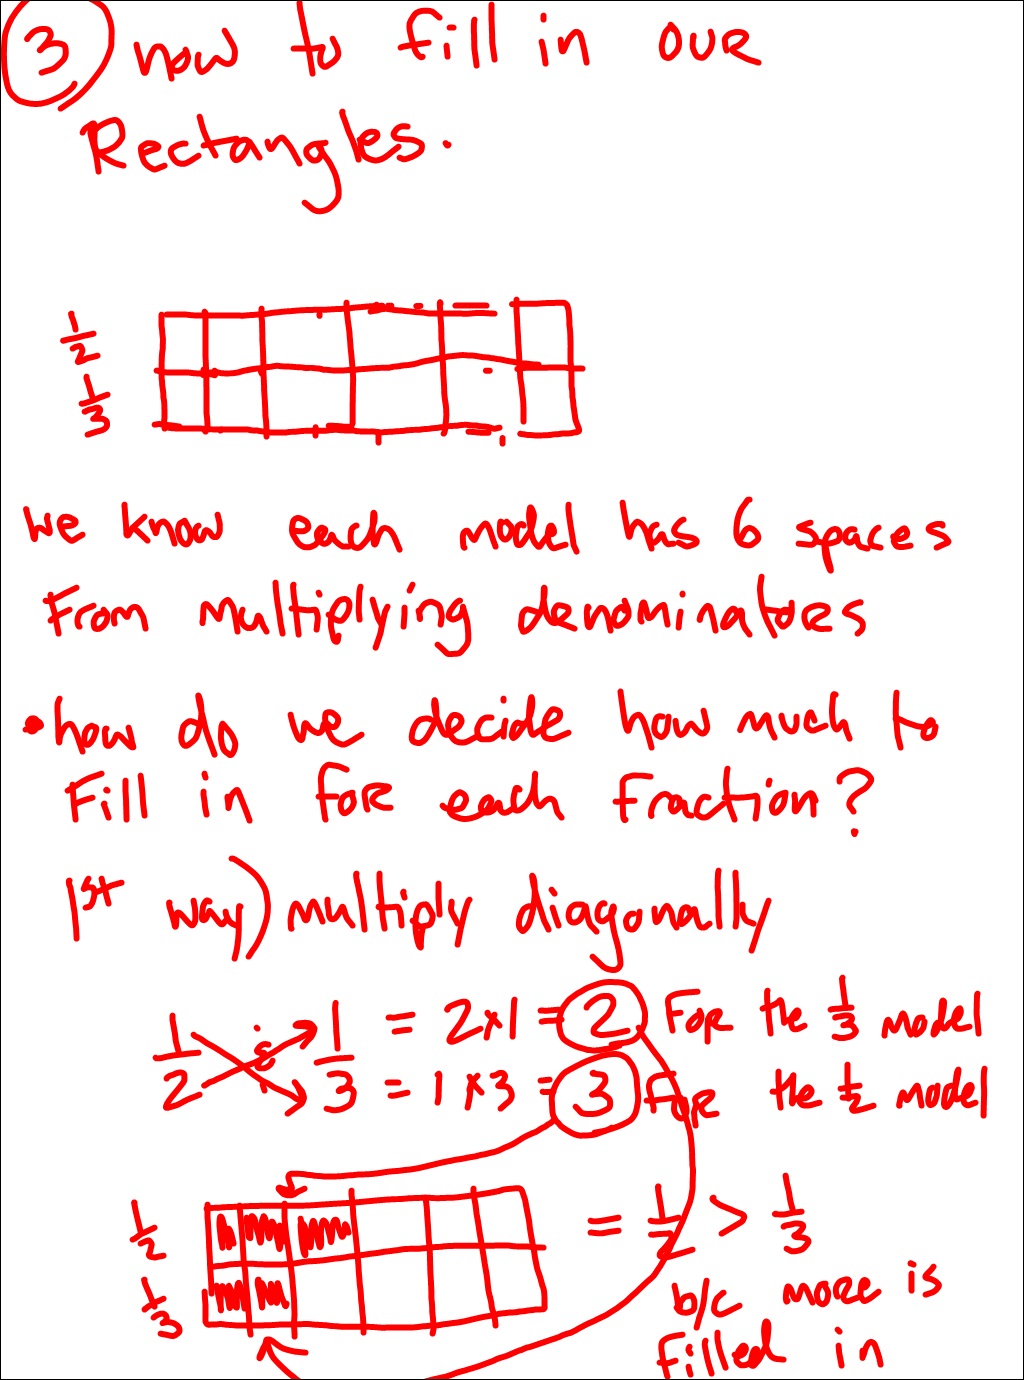 3 how to fill in our
Rectangles.
1/2
1/3
we know each model has 6 spaces
From multiplying denominators
• how do we decide how much to
Fill in for each fraction?
1st way) multiply diagonally
1/2 : 1/3 = 2x1 = 2 For the 1/3 model
= 1x3 = 3 for the 1/2 model
1/2
1/3
= 1/2 > 1/3
b/c more is
filled in